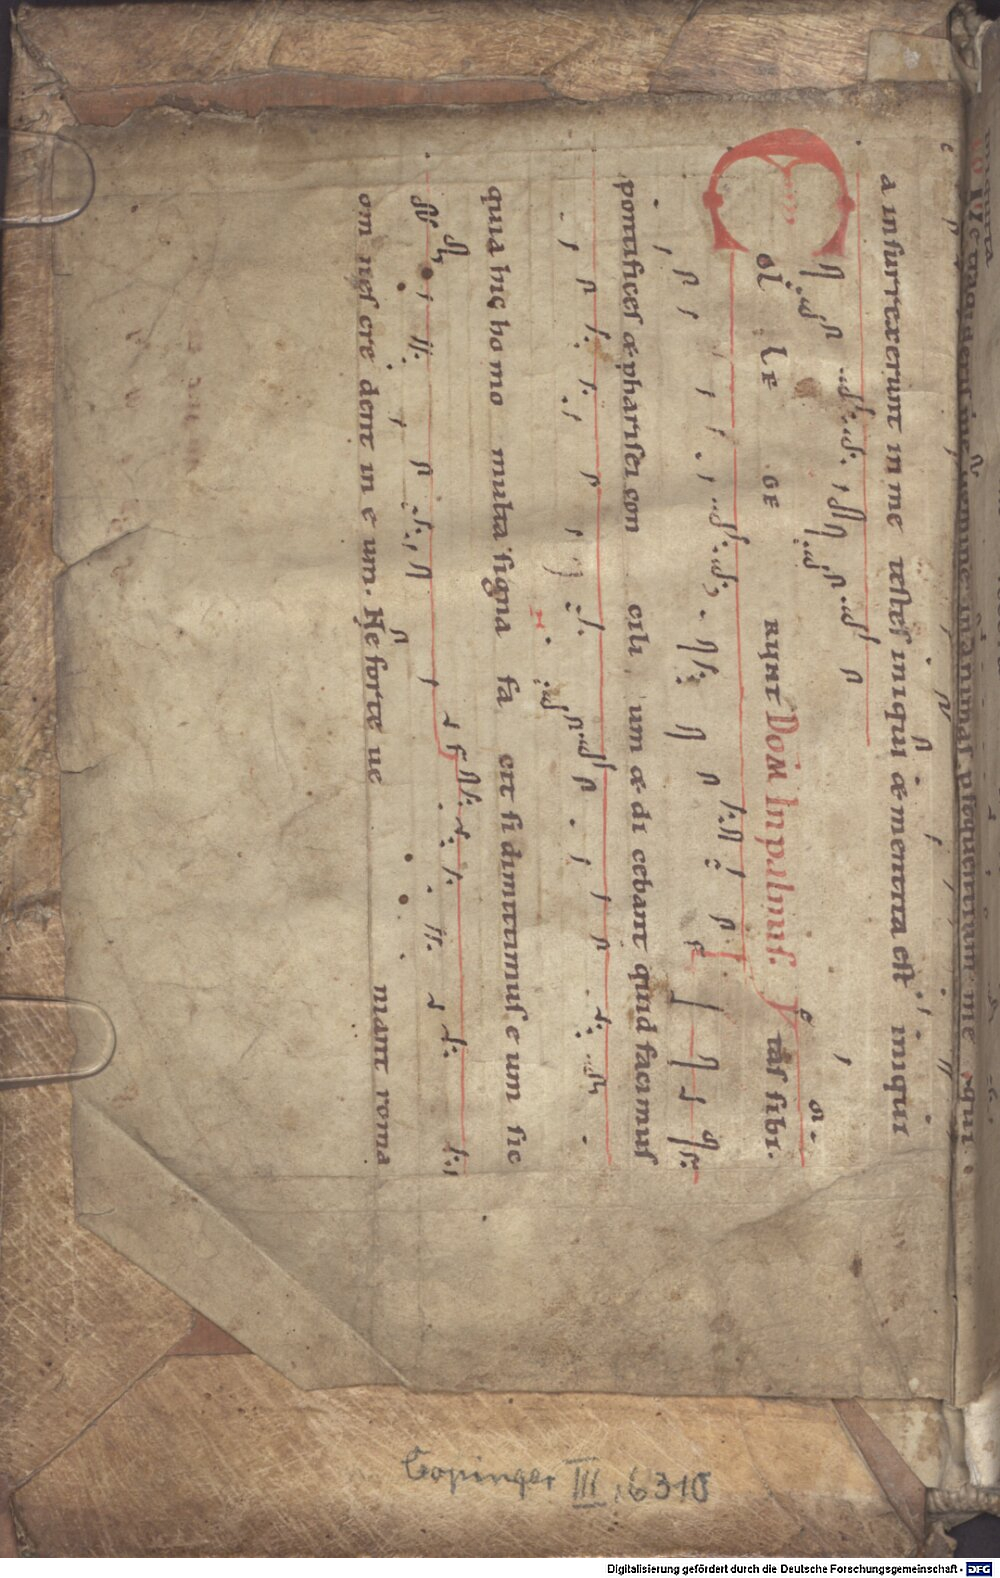 ne tradideris me domine in animas persequentium me. qui
a insurrexerunt in me testes iniqui & mentita est iniqui
Col le ge runt Dom In palmis. tas sibi.
pontifices & pharisei con cili um & di cebant quid facimus
quia hic homo multa signa fa cit si dimittimus e um sic
om nes cre dent in e um. Ne forte ve niant roma
Copinger III, 6310
Digitalisierung gefördert durch die Deutsche Forschungsgemeinschaft - DFG